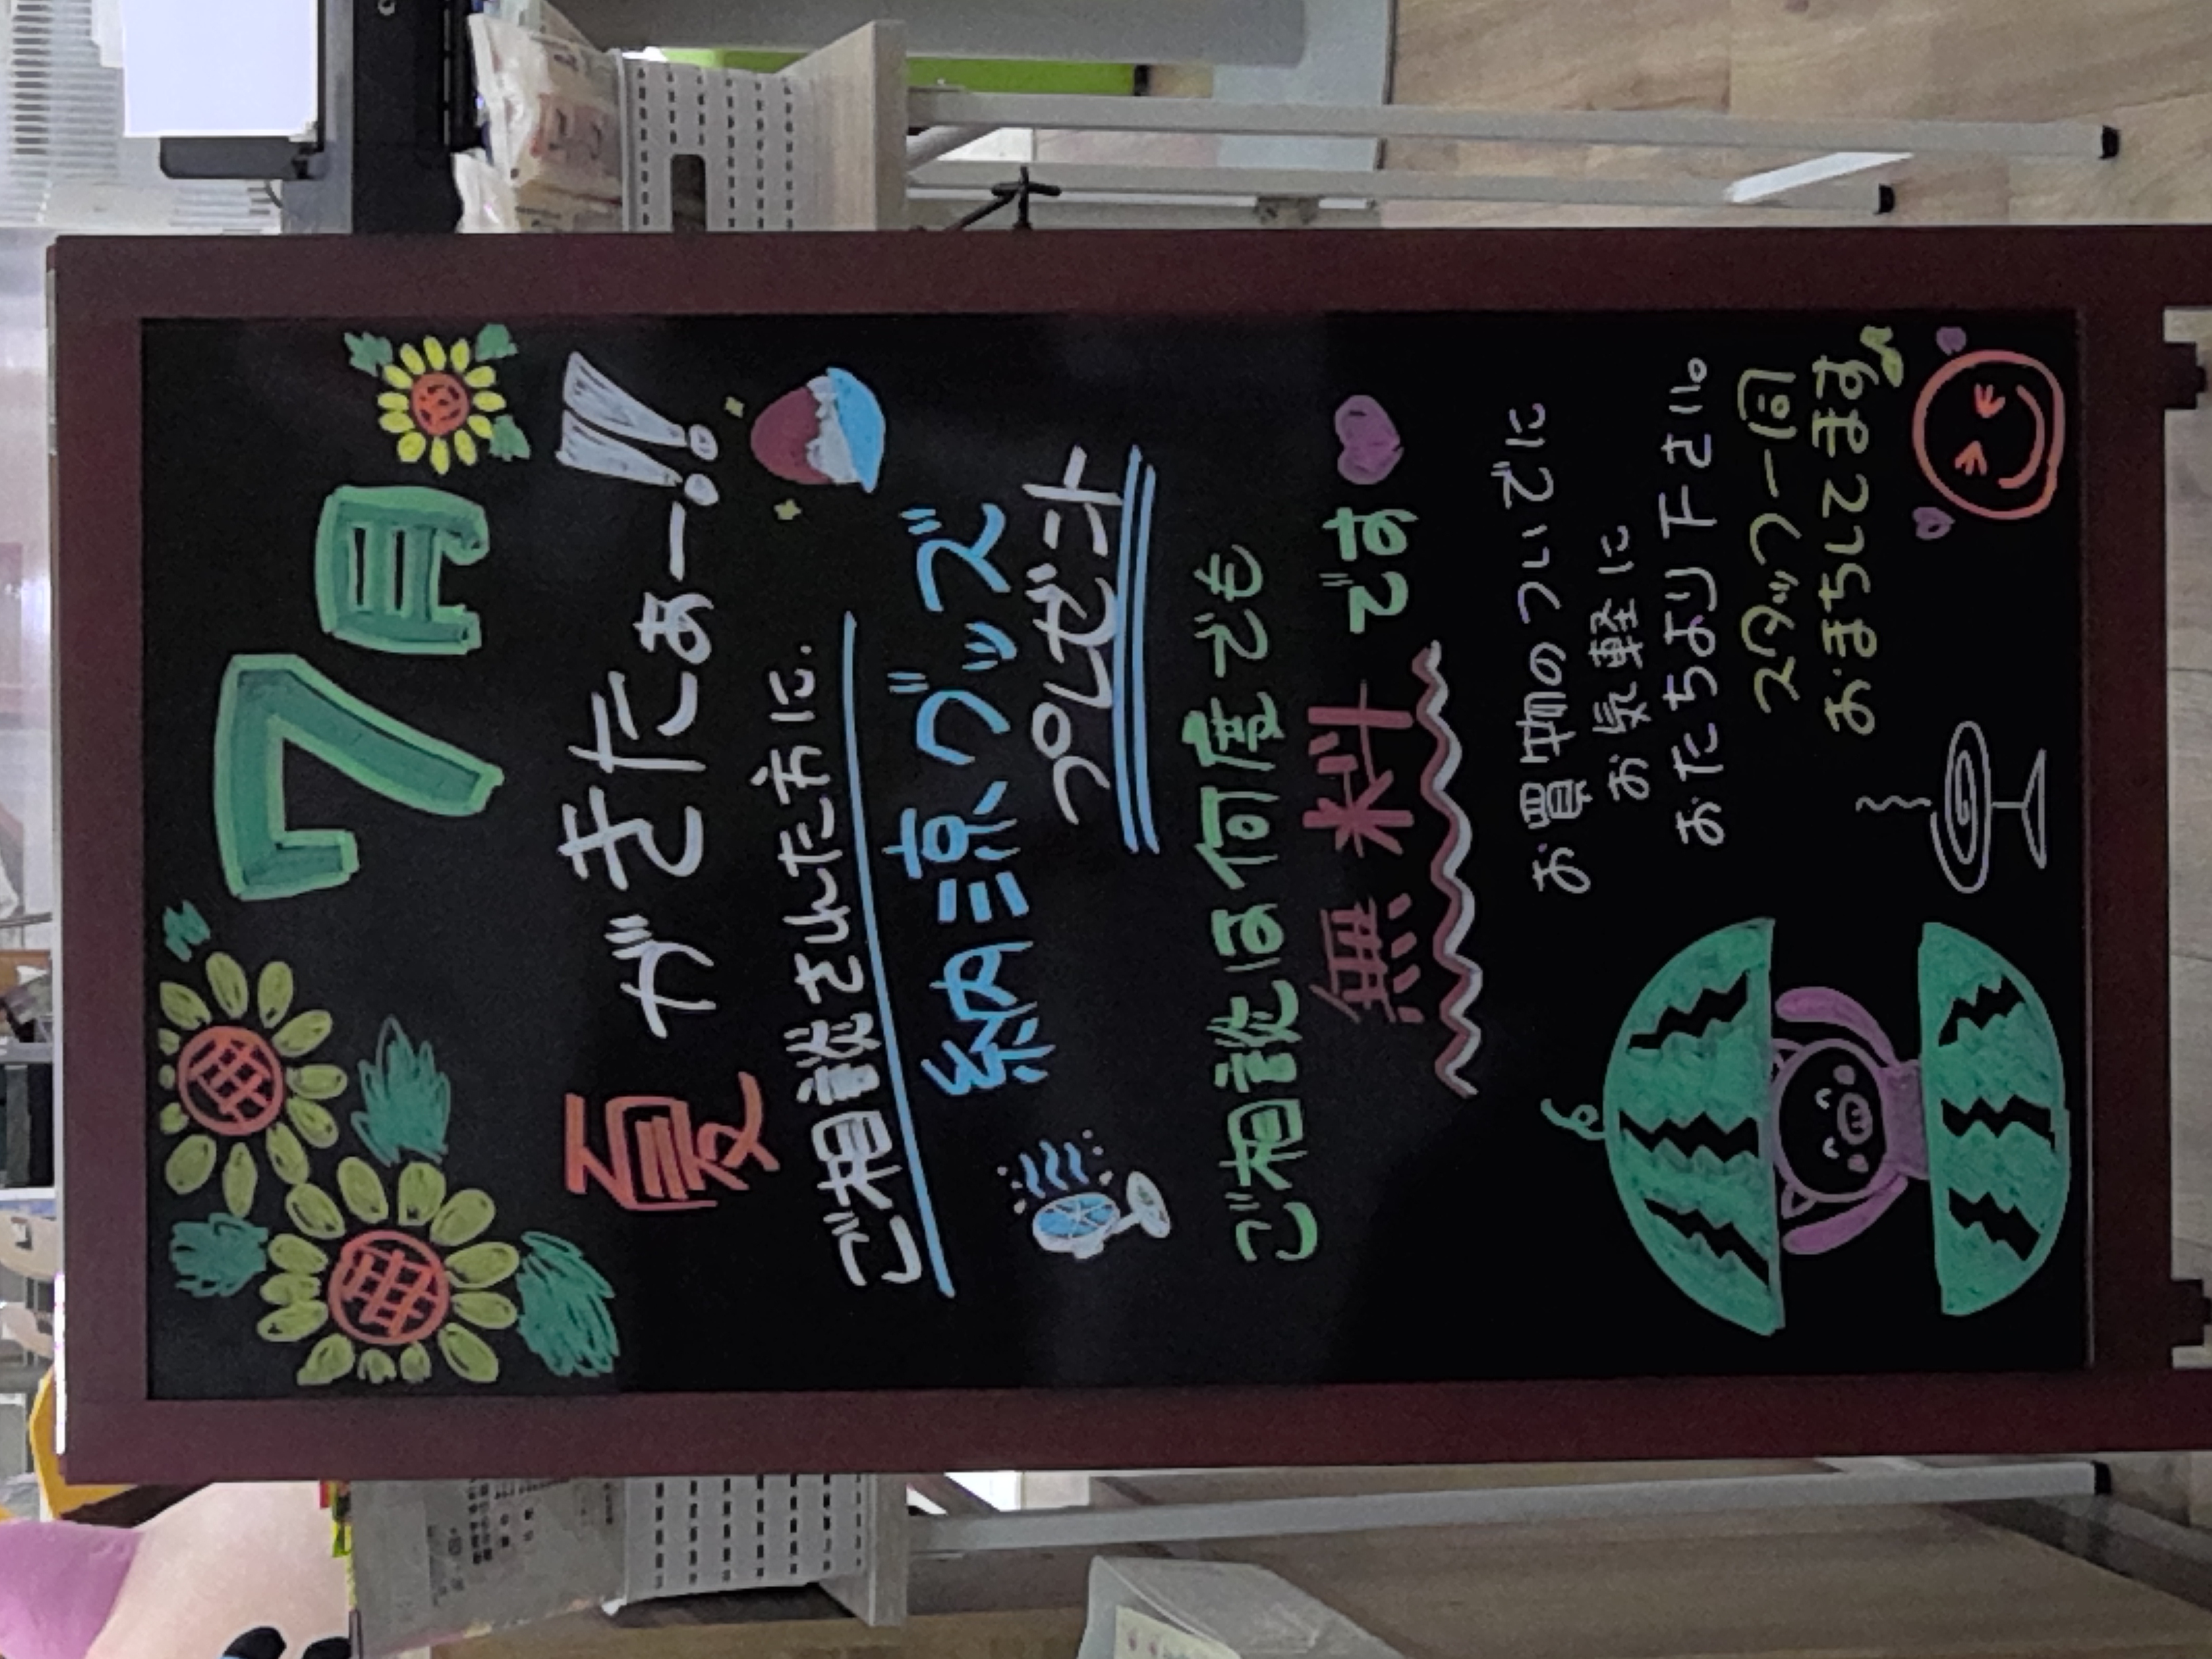 7月
夏がきたぁー!!
ご相談された方に.
納涼グッズ
プレゼント
ご相談は何度でも
無料です
お買物のついでに
お気軽に
おたちより下さい。
スタッフ一同
おまちしてます